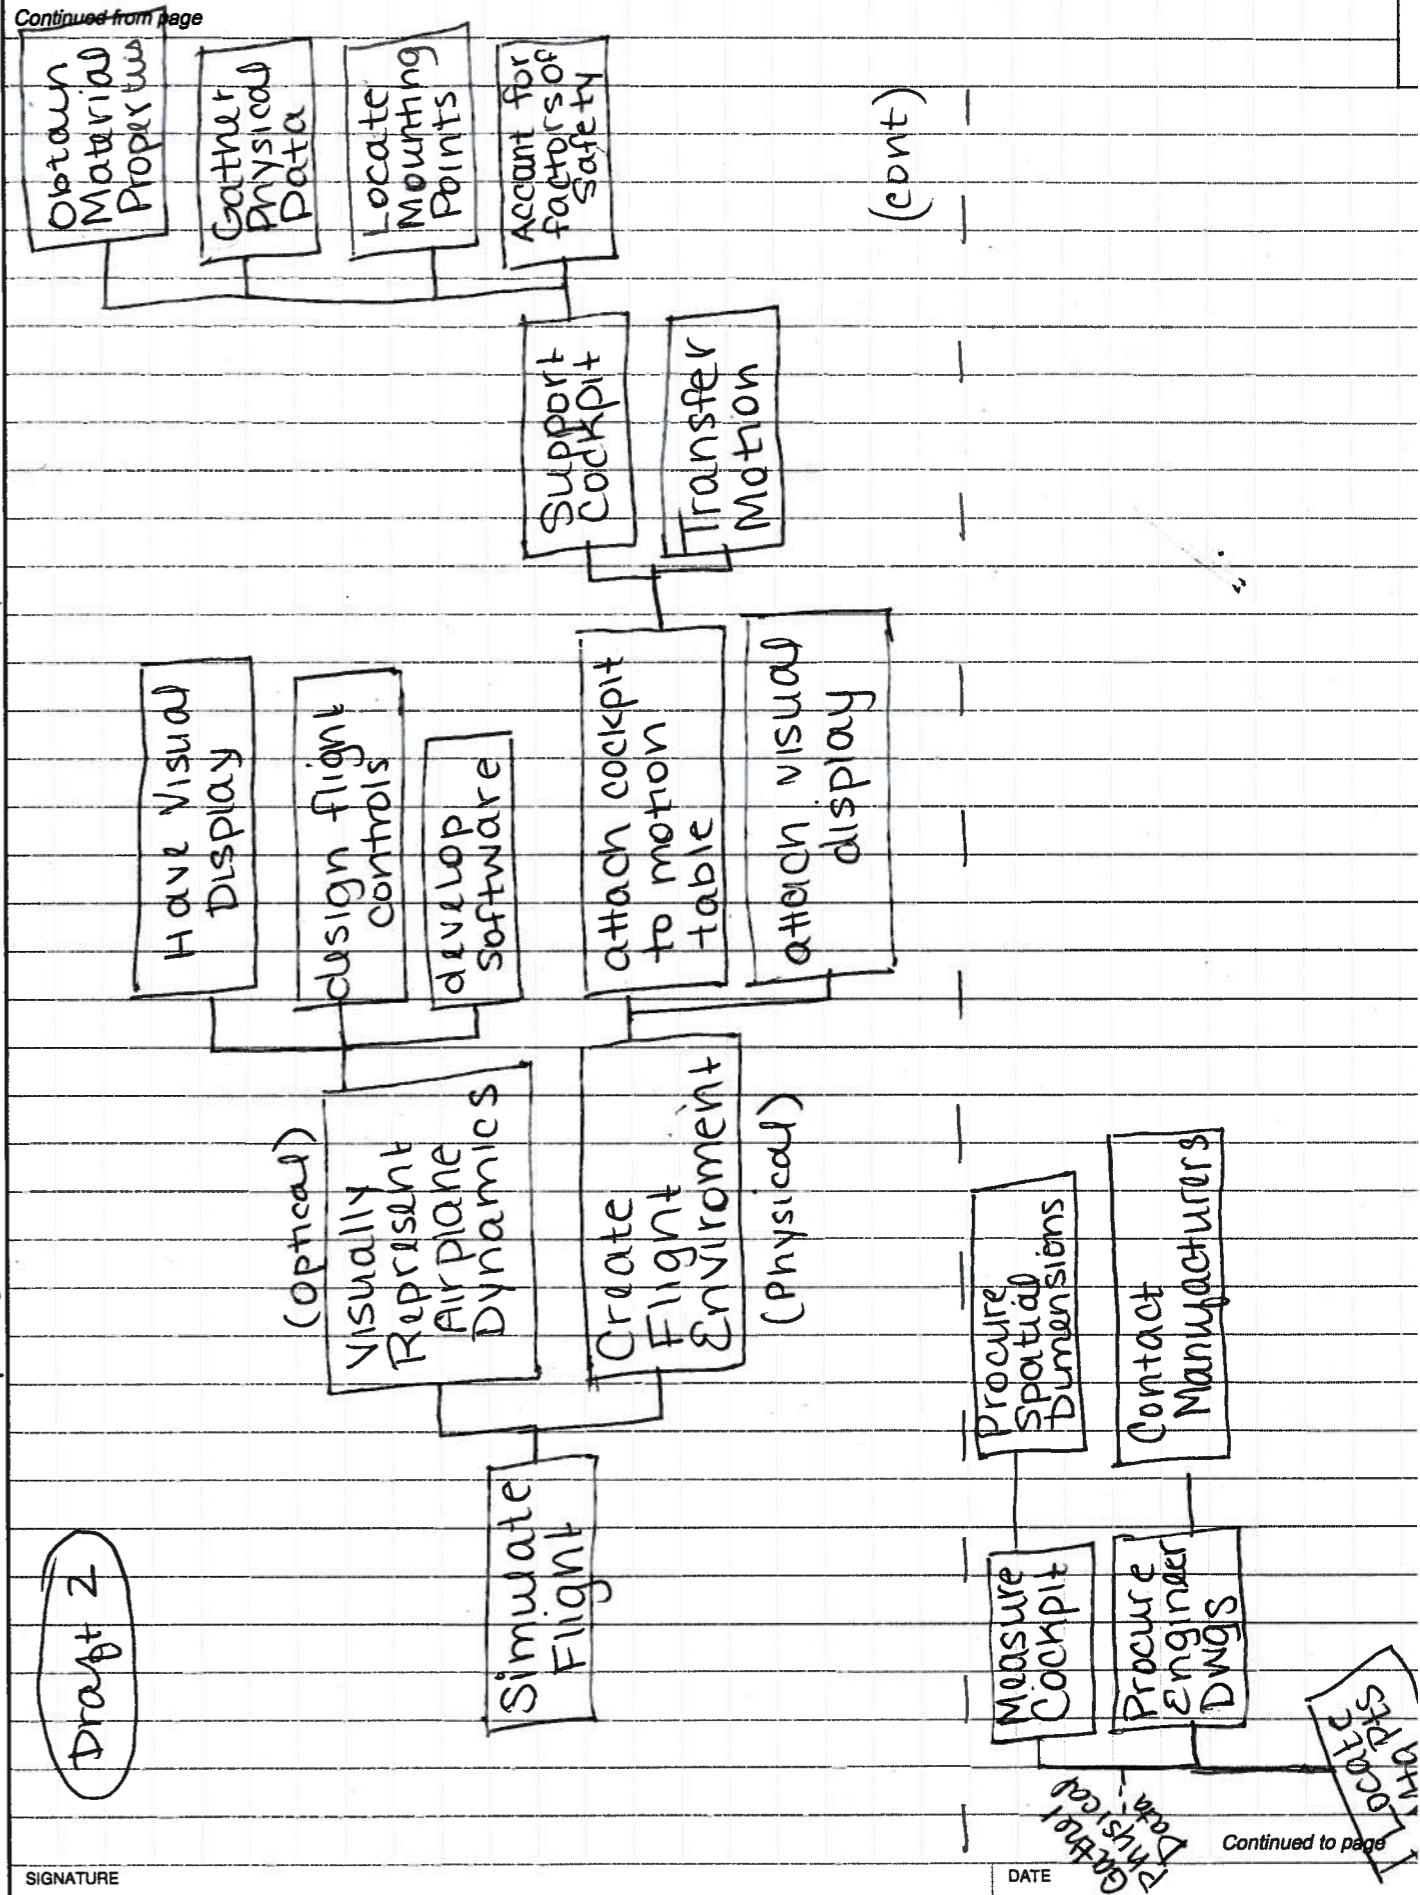 Continued from page
Draft 2
Simulate
Flight
(optical)
Visually
Represent
Airplane
Dynamics
Create
Flight
Enviroment
(Physical)
Have Visual
Display
design flight
controls
develop
software
attach cockpit
to motion
table
attach visual
display
Support
Cockpit
Transfer
Motion
Obtain
Material
Properties
Gather
Physical
Data
Locate
Mounting
Points
Account for
factors of
safety
(cont)
Gather
Physical
Data
Measure
Cockpit
Procure
Engineer
Dwgs
Procure
Spatial
Dimensions
Contact
Manufacturers
Locate
Mtg Pts
Continued to page
SIGNATURE
DATE